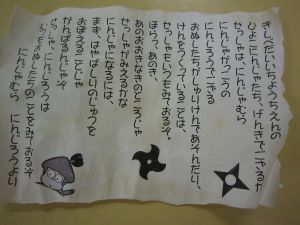 きしべだいいちようちえんの
ひよこにんじゃたち、げんきでござるか
せっしゃは、にんじゃむら
にんじゃがっこうの
にんじろうでござる
おぬしたちがしゅりけんであそんだり、
けんをつくっていることは、
せっしゃもいつもみておるぞ。
ほらっ、あのき、
あのおおきなきのところじゃ
せっしゃがみえるかな
にんじゃになるには、
まず、はやばしりのじゅつを
おぼえることじゃ
がんばるんじゃぞ
せっしゃ、にんじろうは
いつもおぬしたちのことをみておるぞ
にんじゃむら にんじろうより